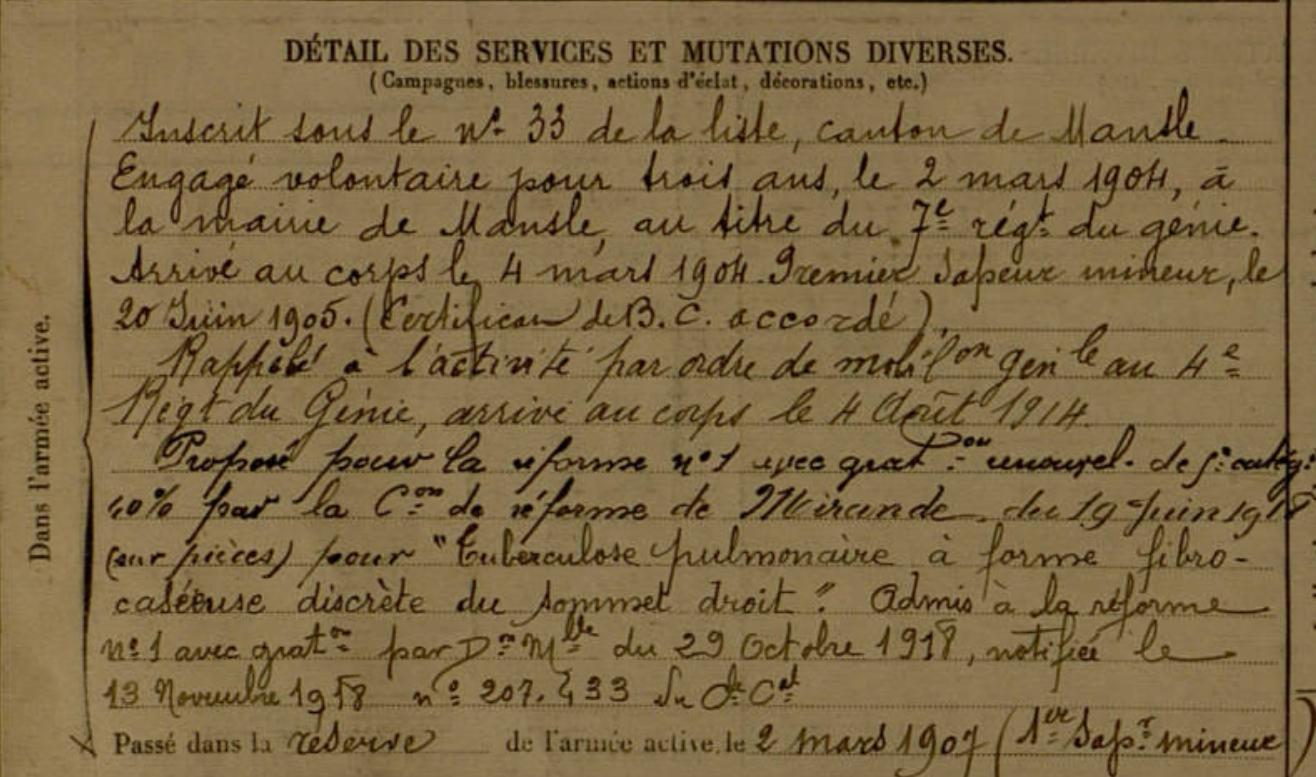 DÉTAIL DES SERVICES ET MUTATIONS DIVERSES.
(Campagnes, blessures, actions d'éclat, décorations, etc.)
Inscrit sous le n° 33 de la liste, canton de Mansle
Engagé volontaire pour trois ans, le 2 mars 1904, à
la mairie de Mansle, au titre du 7e régt du génie.
Arrivé au corps le 4 mars 1904. Premier Sapeur mineur, le
20 Juin 1905. (Certificat de B. C. accordé).
Rappelé à l'activité par ordre de mobilon génle au 4e
Régt du Génie, arrivé au corps le 4 Août 1914.
Proposé pour la réforme n° 1 avec graton renouvel. de 5e catég:
40% par la Con de réforme de Mirande du 19 Juin 1918
(sur pièces) pour "Tuberculose pulmonaire à forme fibro-
caséeuse discrète du sommet droit". Admis à la réforme
n° 1 avec graton par Don Mlle du 29 Octobre 1918, notifiée le
13 Novembre 1918 n° 207.433
Passé dans la réserve de l'armée active, le 2 mars 1907 (1er Sapr mineur)
Dans l'armée active.